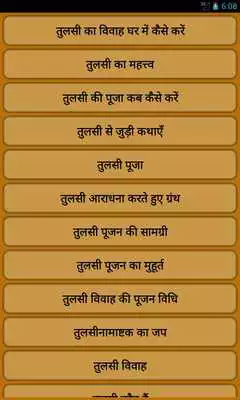 6:08
तुलसी का विवाह घर में कैसे करें
तुलसी का महत्त्व
तुलसी की पूजा कब कैसे करें
तुलसी से जुड़ी कथाएँ
तुलसी पूजा
तुलसी आराधना करते हुए ग्रंथ
तुलसी पूजन की सामग्री
तुलसी पूजन का मुहूर्त
तुलसी विवाह की पूजन विधि
तुलसीनामाष्टक का जप
तुलसी विवाह